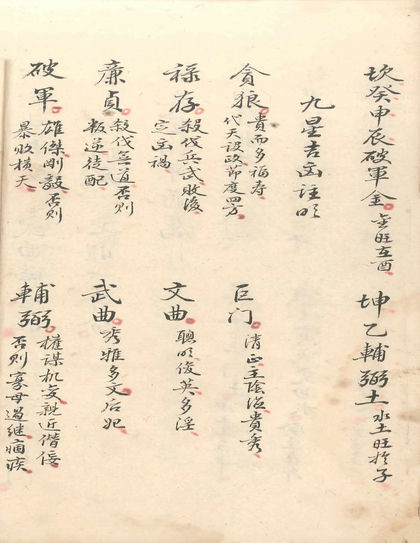 坎癸申辰破軍金 金旺在酉
坤乙輔弼土 水土旺於子
九星吉凶註明
貪狼 貴而多福壽
代天設政節度四方
巨门 清正主陰溢貴秀
祿存 殺伐兵武敗後
定凶禍
文曲 聰明俊英多淫
廉貞 殺伐無道否則
叛逆徒配
武曲 秀雅多文后妃
破軍 雄傑剛毅否則
暴敗橫夭
輔弼 權謀机变親近僭佞
否則寡母過继痼疾